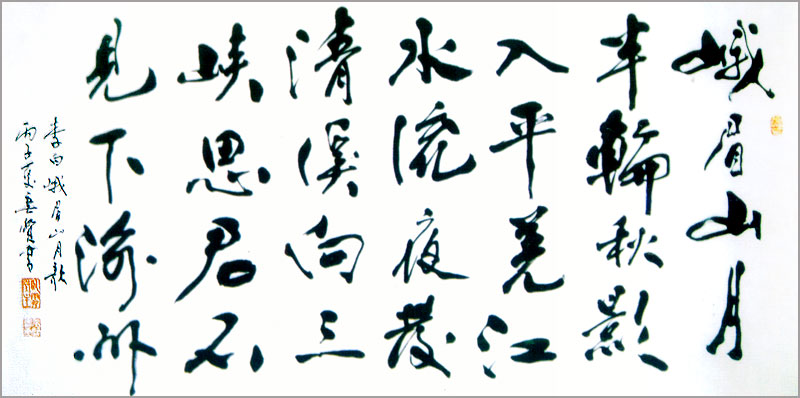 峨眉山月
半輪秋影
入平羌江
水流夜發
清溪向三
峡思君不
見下渝州
李白峨眉山月歌
丙子夏